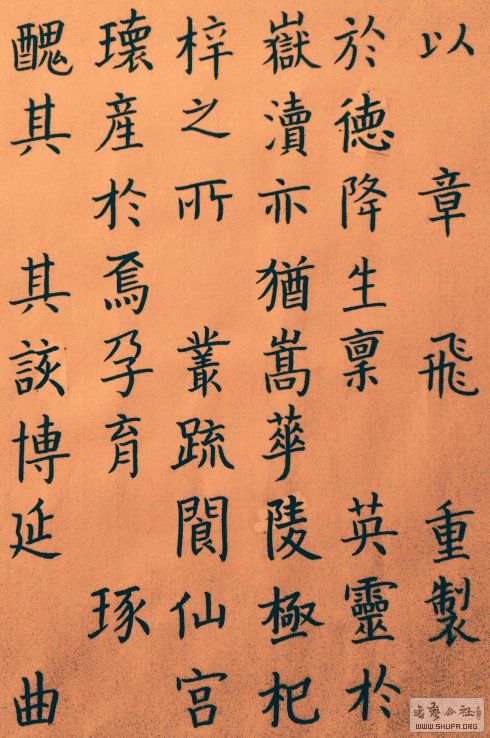 以章飛重製
於德降生稟英靈於
嶽瀆亦猶嵩華陵極杞
梓之所叢疏閬仙宫
瓌産於焉孕育琢
醜其其該博延曲
书艺公社
WWW.SHUFA.ORG